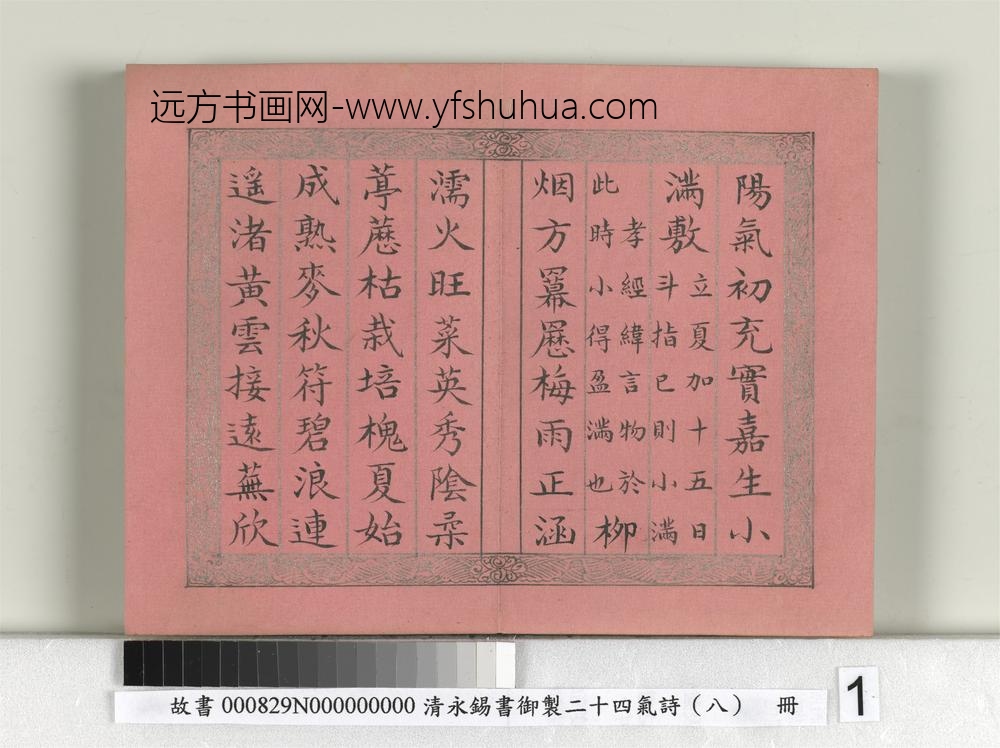 远方书画网-www.yfshuhua.com
陽氣初充實嘉生小
滿敷
立夏加十五日
斗指巳則小滿
孝經緯言物於
此時小得盈滿也
柳
烟方羃䍥梅雨正涵
濡火旺菜英秀陰柔
葶藶枯栽培槐夏始
成熟麥秋符碧浪連
遥渚黃雲接遠蕪欣
故書 000829N000000000 清永錫書御製二十四氣詩（八） 冊
1